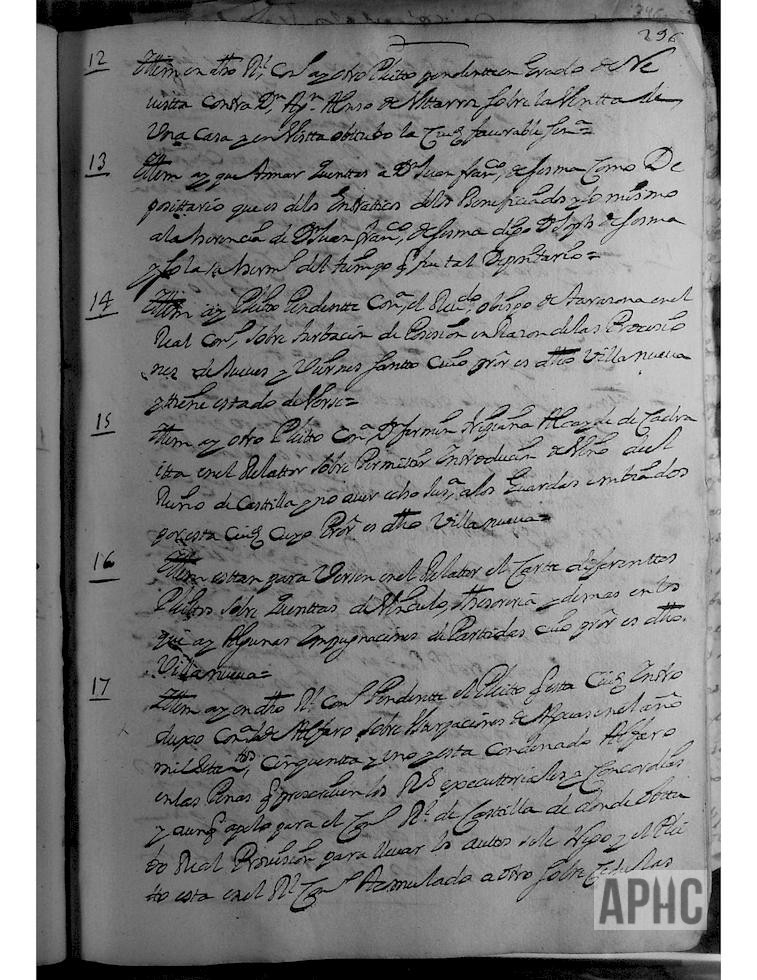 296
12 Ittem en dho Rl. Consº ay otro Pleito pendiente en Grado de Re
vista contra Dn. Alonso de Navarro sobre la Venta de
Una Casa y en Vista obtubo la Ciud. favorable Sena=
13 Ittem ay que tomar quenttas a Dn Juan Franco. de Lesma Como De
posittario que es delos Entraticos delos Beneficiados y lo mismo
ala herencia de Dn Juan Franco. de Lesma digo Dn Joseph de Lesma
y Sola su herma. del tiempo q. fue tal Depositario=
14 Ittem ay Pleito Pendiente Cona. el Obispo de Tarazona en el
Real Cons. sobre turbacion de Posesion en Razon delas Procesio
nes de Jueves y Viernes Santto Cuio Pror es dho Villanueva
y tiene estado de Verse=
15 Ittem ay otro Pleito Cona. Dn fermin Alcayde de Cadra
itta en el Relattor sobre Permitir Introducion de Vino de el
Reino de Castilla y no aver echo Jusa. alos Guardas embiados
por esta Ciud. Cuyo Pror es dho Villanueva=
16 Ittem esttan para Verse en el Relattor el Caxtte diferenttes
Pleittos sobre quenttas de Vinculo, Thesoreria y demas en los
que ay Algunas Impugnaciones de Partidas Cuio pror es dho.
Villanueva=
17 Ittem ay en dho Rl. Cons. Pendiente el Pleito q. esta Ciud. Intro
dujo Cona. la de Alfaro sobre Usurpaciones de Aguas en el año
mil Settos. Cinquentta y uno y esta Condenado Alfaro
en las Penas q. prescriven los Rs. executtoriales y Concordias
y aunq. apelo para el Cons. Rl. de Castilla de donde obttu
bo Real Provision para llevar los autos se le Nego y el Plei
to esta en el Rl. Cons. Acumulado a otro sobre Cedulas
APHC